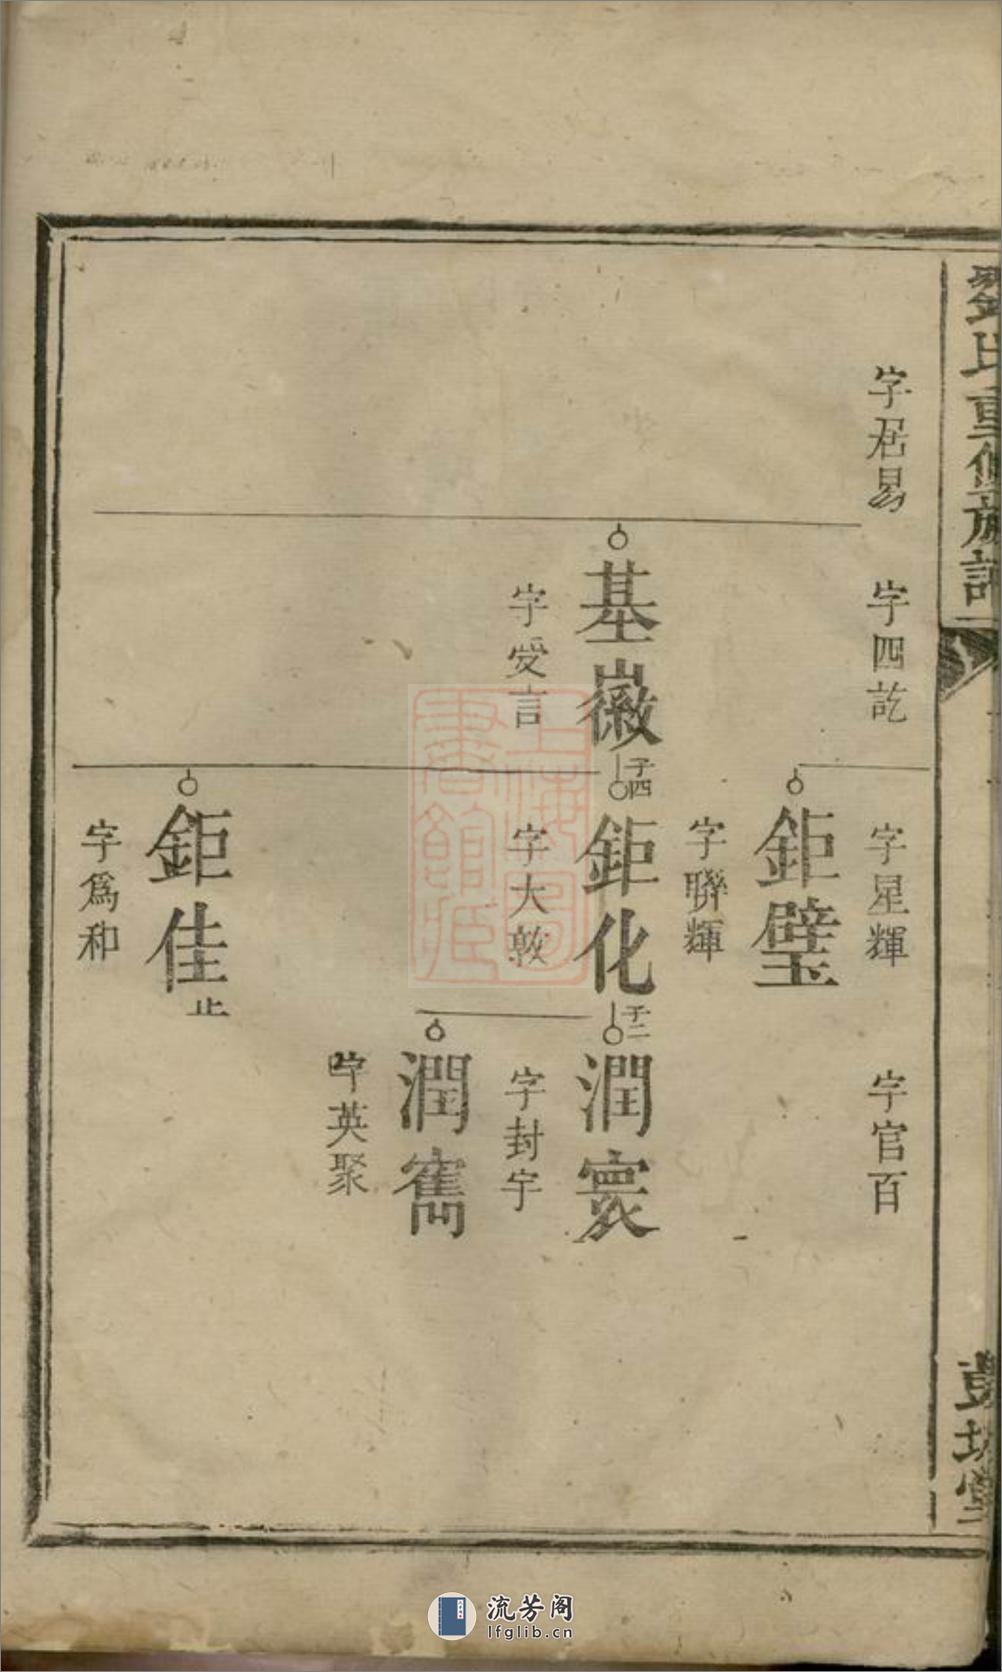 氏重修族譜
字居易
字四訖
字星輝
字官百
鉅璧
字聯輝
基徽
子四
鉅化
子二
潤寰
字受言
字大敦
字封宇
潤寯
字英聚
鉅佳
止
字爲和
上海圖
書館藏
流芳阁
lfglib.cn